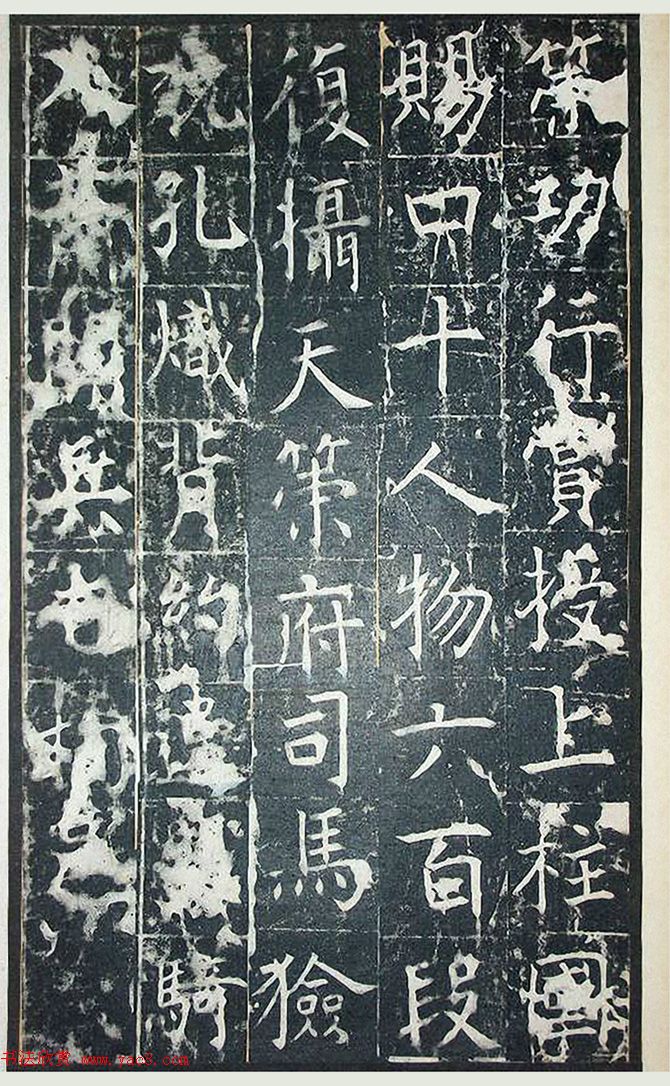 策功行賞授上柱國
賜甲十人物六百段
復攝天策府司馬獫
狁孔熾背約 騎
兵
书法欣赏 www.yac8.com